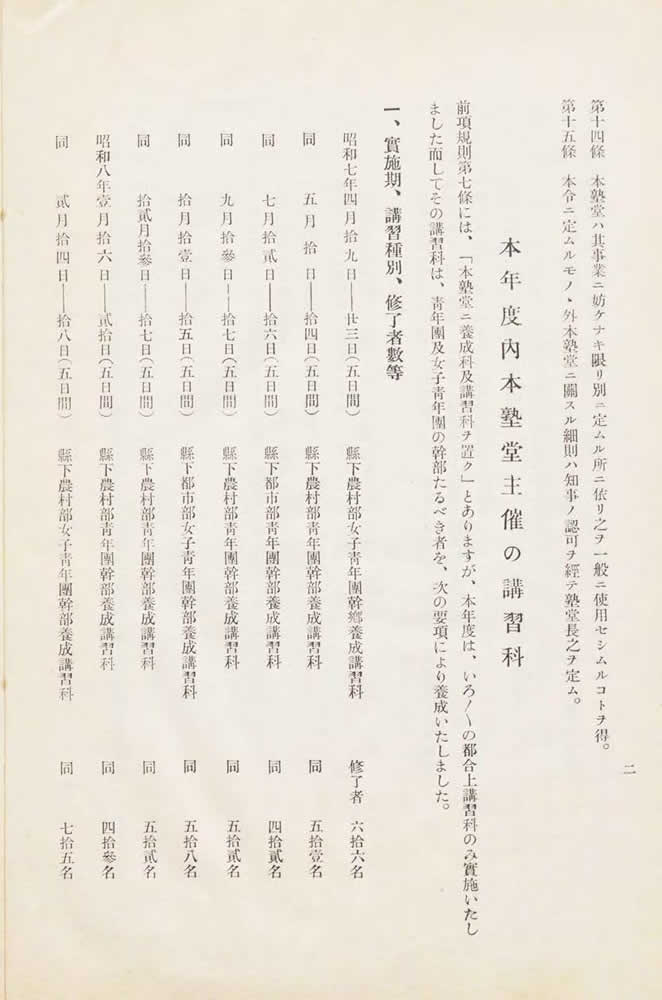 二
第十四條　本塾堂ハ其事業ニ妨ケナキ限リ別ニ定ムル所ニ依リ之ヲ一般ニ使用セシムルコトヲ得。
第十五條　本令ニ定ムルモノヽ外本塾堂ニ關スル細則ハ知事ノ認可ヲ經テ塾堂長之ヲ定ム。
本年度內本塾堂主催の講習科
前項規則第七條には、「本塾堂ニ養成科及講習科ヲ置ク」とありますが、本年度は、いろ〳〵の都合上講習科のみ實施いたし
ました而してその講習科は、靑年團及女子靑年團の幹部たるべき者を、次の要項により養成いたしました。
一、實施期、講習種別、修了者數等
昭和七年四月拾九日――廿三日(五日間)　縣下農村部女子靑年團幹鄕養成講習科　修了者　六拾六名
同　五月拾日――拾四日(五日間)　縣下農村部靑年團幹部養成講習科　同　五拾壹名
同　七月拾貳日――拾六日(五日間)　縣下都市部靑年團幹部養成講習科　同　四拾貳名
同　九月拾參日――拾七日(五日間)　縣下農村部靑年團幹部養成講習科　同　五拾貳名
同　拾月拾壹日――拾五日(五日間)　縣下都市部女子靑年團幹部養成講習科　同　五拾八名
同　拾貳月拾參日――拾七日(五日間)　縣下農村部靑年團幹部養成講習科　同　五拾貳名
昭和八年壹月拾六日――貳拾日(五日間)　縣下農村部靑年團幹部養成講習科　同　四拾參名
同　貳月拾四日――拾八日(五日間)　縣下農村部女子靑年團幹部養成講習科　同　七拾五名